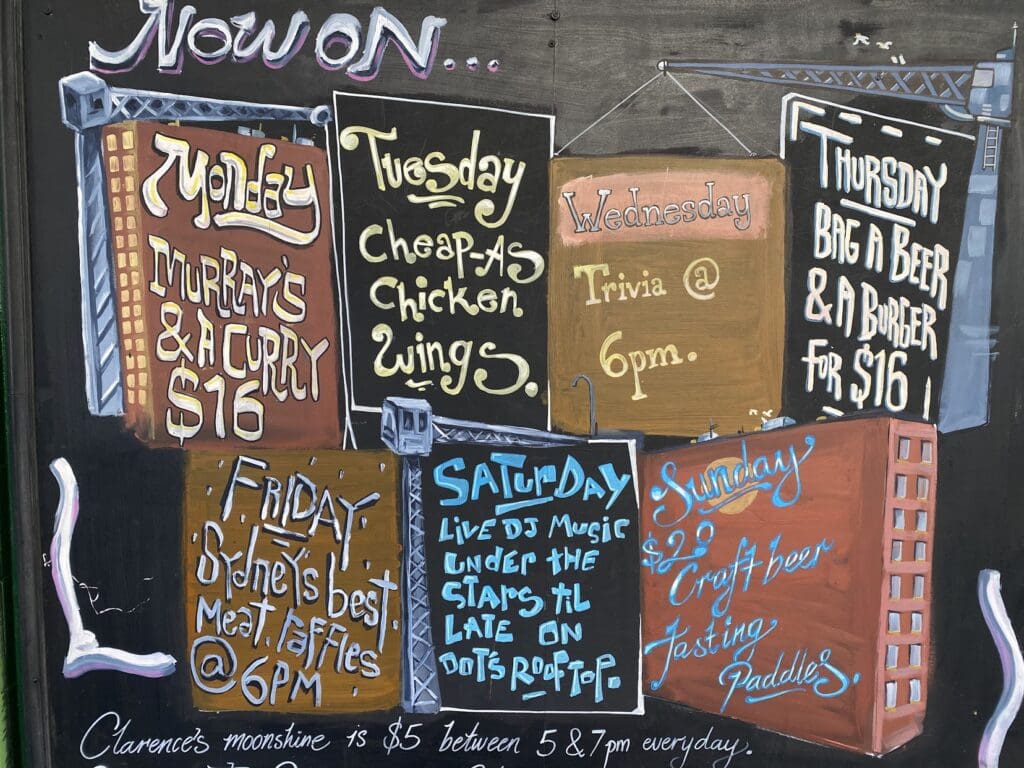 Now on...
Monday
Murray's
& A Curry
$16
Tuesday
Cheap-As
Chicken
Wings.
Wednesday
Trivia @
6pm.
Thursday
Bag a Beer
& A Burger
for $16
Friday
Sydney's best
Meat raffles
@ 6pm
Saturday
Live DJ Music
under the
stars til
late on
Dot's Rooftop.
Sunday
$20
Craft beer
Tasting
Paddles.
Clarence's moonshine is $5 between 5 & 7pm everyday.